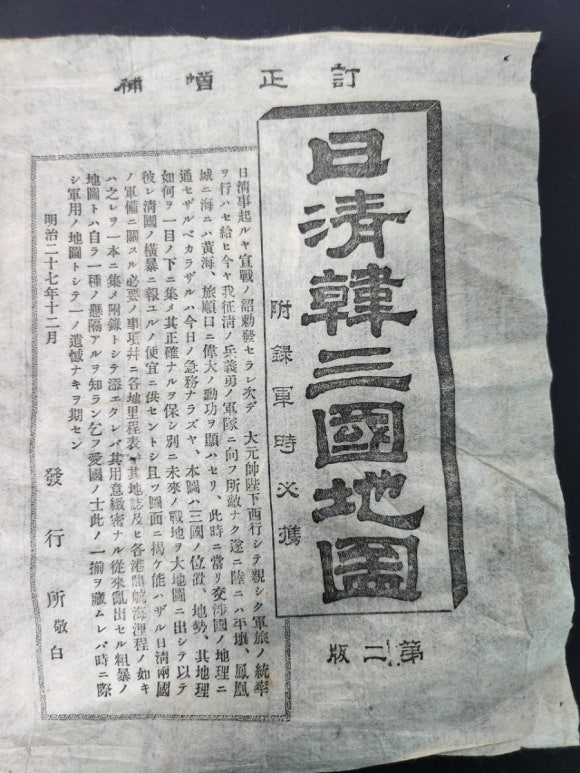 訂正増補
日清韓三國地圖
附録軍時必携
第二版
日清事起ルヤ宣戰ノ詔勅發セラレ次デ 大元帥陛下西行シテ親シク軍旅ノ統率
ヲ行ハセ給ヒ今ヤ我征清ノ兵義勇ノ軍隊ニ向フ所敵ナク遂ニ陸ニハ平壤、鳳凰
城ニ海ニハ黄海、旅順口ニ偉大ノ勳功ヲ顯ハセリ、此時ニ當リ交渉國ノ地理ニ
通セザルベカラザルハ今日ノ急務ナラズヤ、本圖ハ三國ノ位置、地勢、其地理
如何ヲ一目ノ下ニ集メ其正確ナルヲ保シ別ニ未來ノ戰地ヲ大地圖ニ出シテ以テ
彼レ清國ノ横暴ニ報ユルノ便宜ニ供セントシ且ツ圖面ニ掲ケ能ハザル日清兩國
ノ軍備ニ關スル必要ノ事項幷ニ各地里程表、其地誌及ヒ各港間航海浬程ノ如キ
ハ之レヲ一本ニ集メ附錄トシテ添エタレバ其用意緻密ナル從來亂出セル粗暴ノ
地圖トハ自ラ一種ノ懸隔アルヲ知ラン乞フ愛國ノ士此ノ一揃ヲ藏ムレバ時ニ際
シ軍用ノ地圖トシテ一ノ遺憾ナキヲ期セン
明治二十七年十二月
發行所敬白